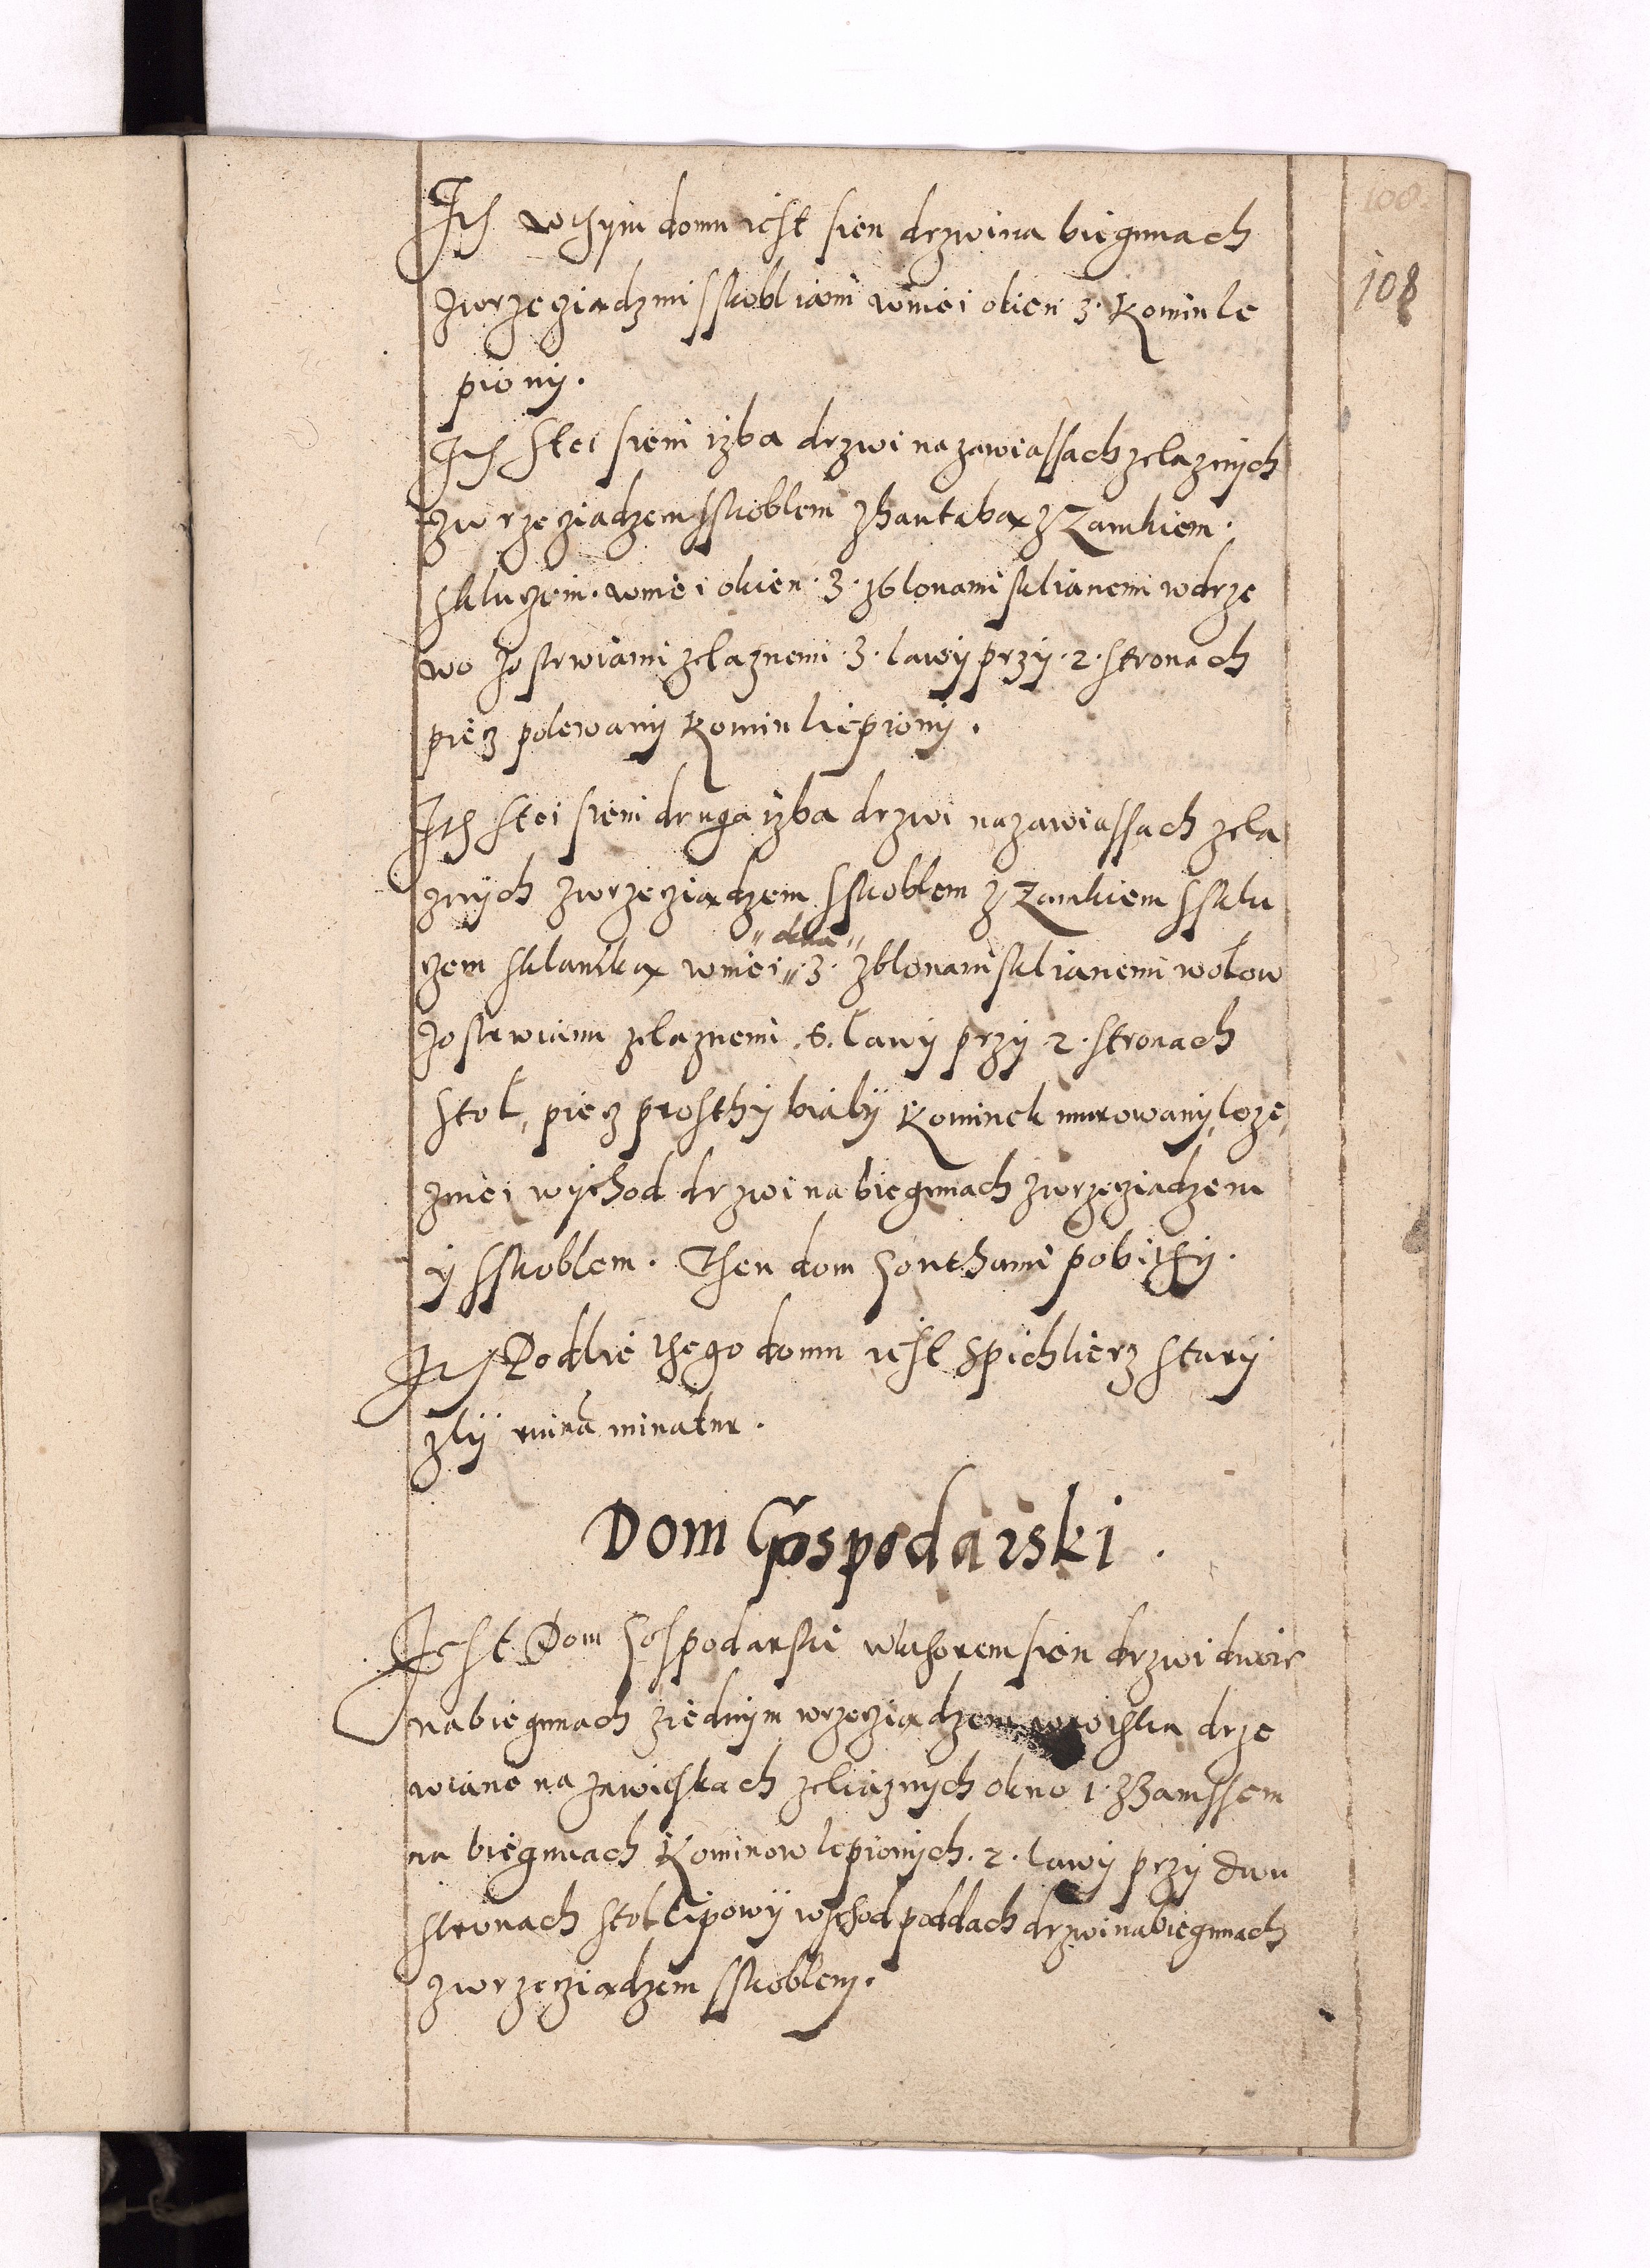 108.
108
Ith wthym domu iest sien drzwi na biegunach
z wrzeziadzmi sskobliami w niei okien 3. Komin le
piony.
Ith stei sieni izba drzwi na zawiassach zelaznych
z wrzeziadzem sskoblem z hantabą z Zamkiem.
skluczem. w niei okien. 3. z blonami sklianemi w drze
wo z ostrwiami zelaznemi. 3. lawy przy. 2. stronach
piecz polewany Komin liepiony.
Ith stei sieni druga izba drzwi na zawiassach zela
znych z wrzeziadzem sskoblem z Zamkiem s sklu
czem sklamką w niei „okna„ 3. z blonami sklianemi w ołow
z ostrwiami zelaznemi. 6. lawy przy. 2. stronach
stoł, piecz prosthy biały Kominek murowany, loze,
z niei wychod drzwi na biegunach z wrzeziadzem
y sskoblem. Then dom gonthami pobithy.
Ith Podlie thego domu iest spichlierz stary
zly ruinā minatur.
Dom Gospodarski.
Jest Dom Gospodarski w kthorem sien drzwi dwoie
na biegunach z iednym wrzeziadzem wrothka drze
wiane na zawieskach zeliaznych okno 1. z Bamssem
na biegunach Kominow lepionych. 2. lawy przy dwu
stronach stol lipowy wschod pod dach drzwi na biegunach
z wrzeziadzem sskoblem.